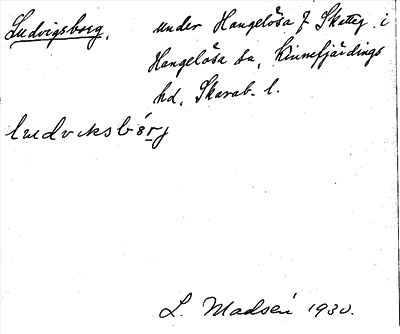 Ludvigsborg. under Hangelösa 7 Skatteg. i
Hangelösa sn, Kinnefjärdings
hd, Skarab. l.
ludviksbórj
L. Madsén 1930.